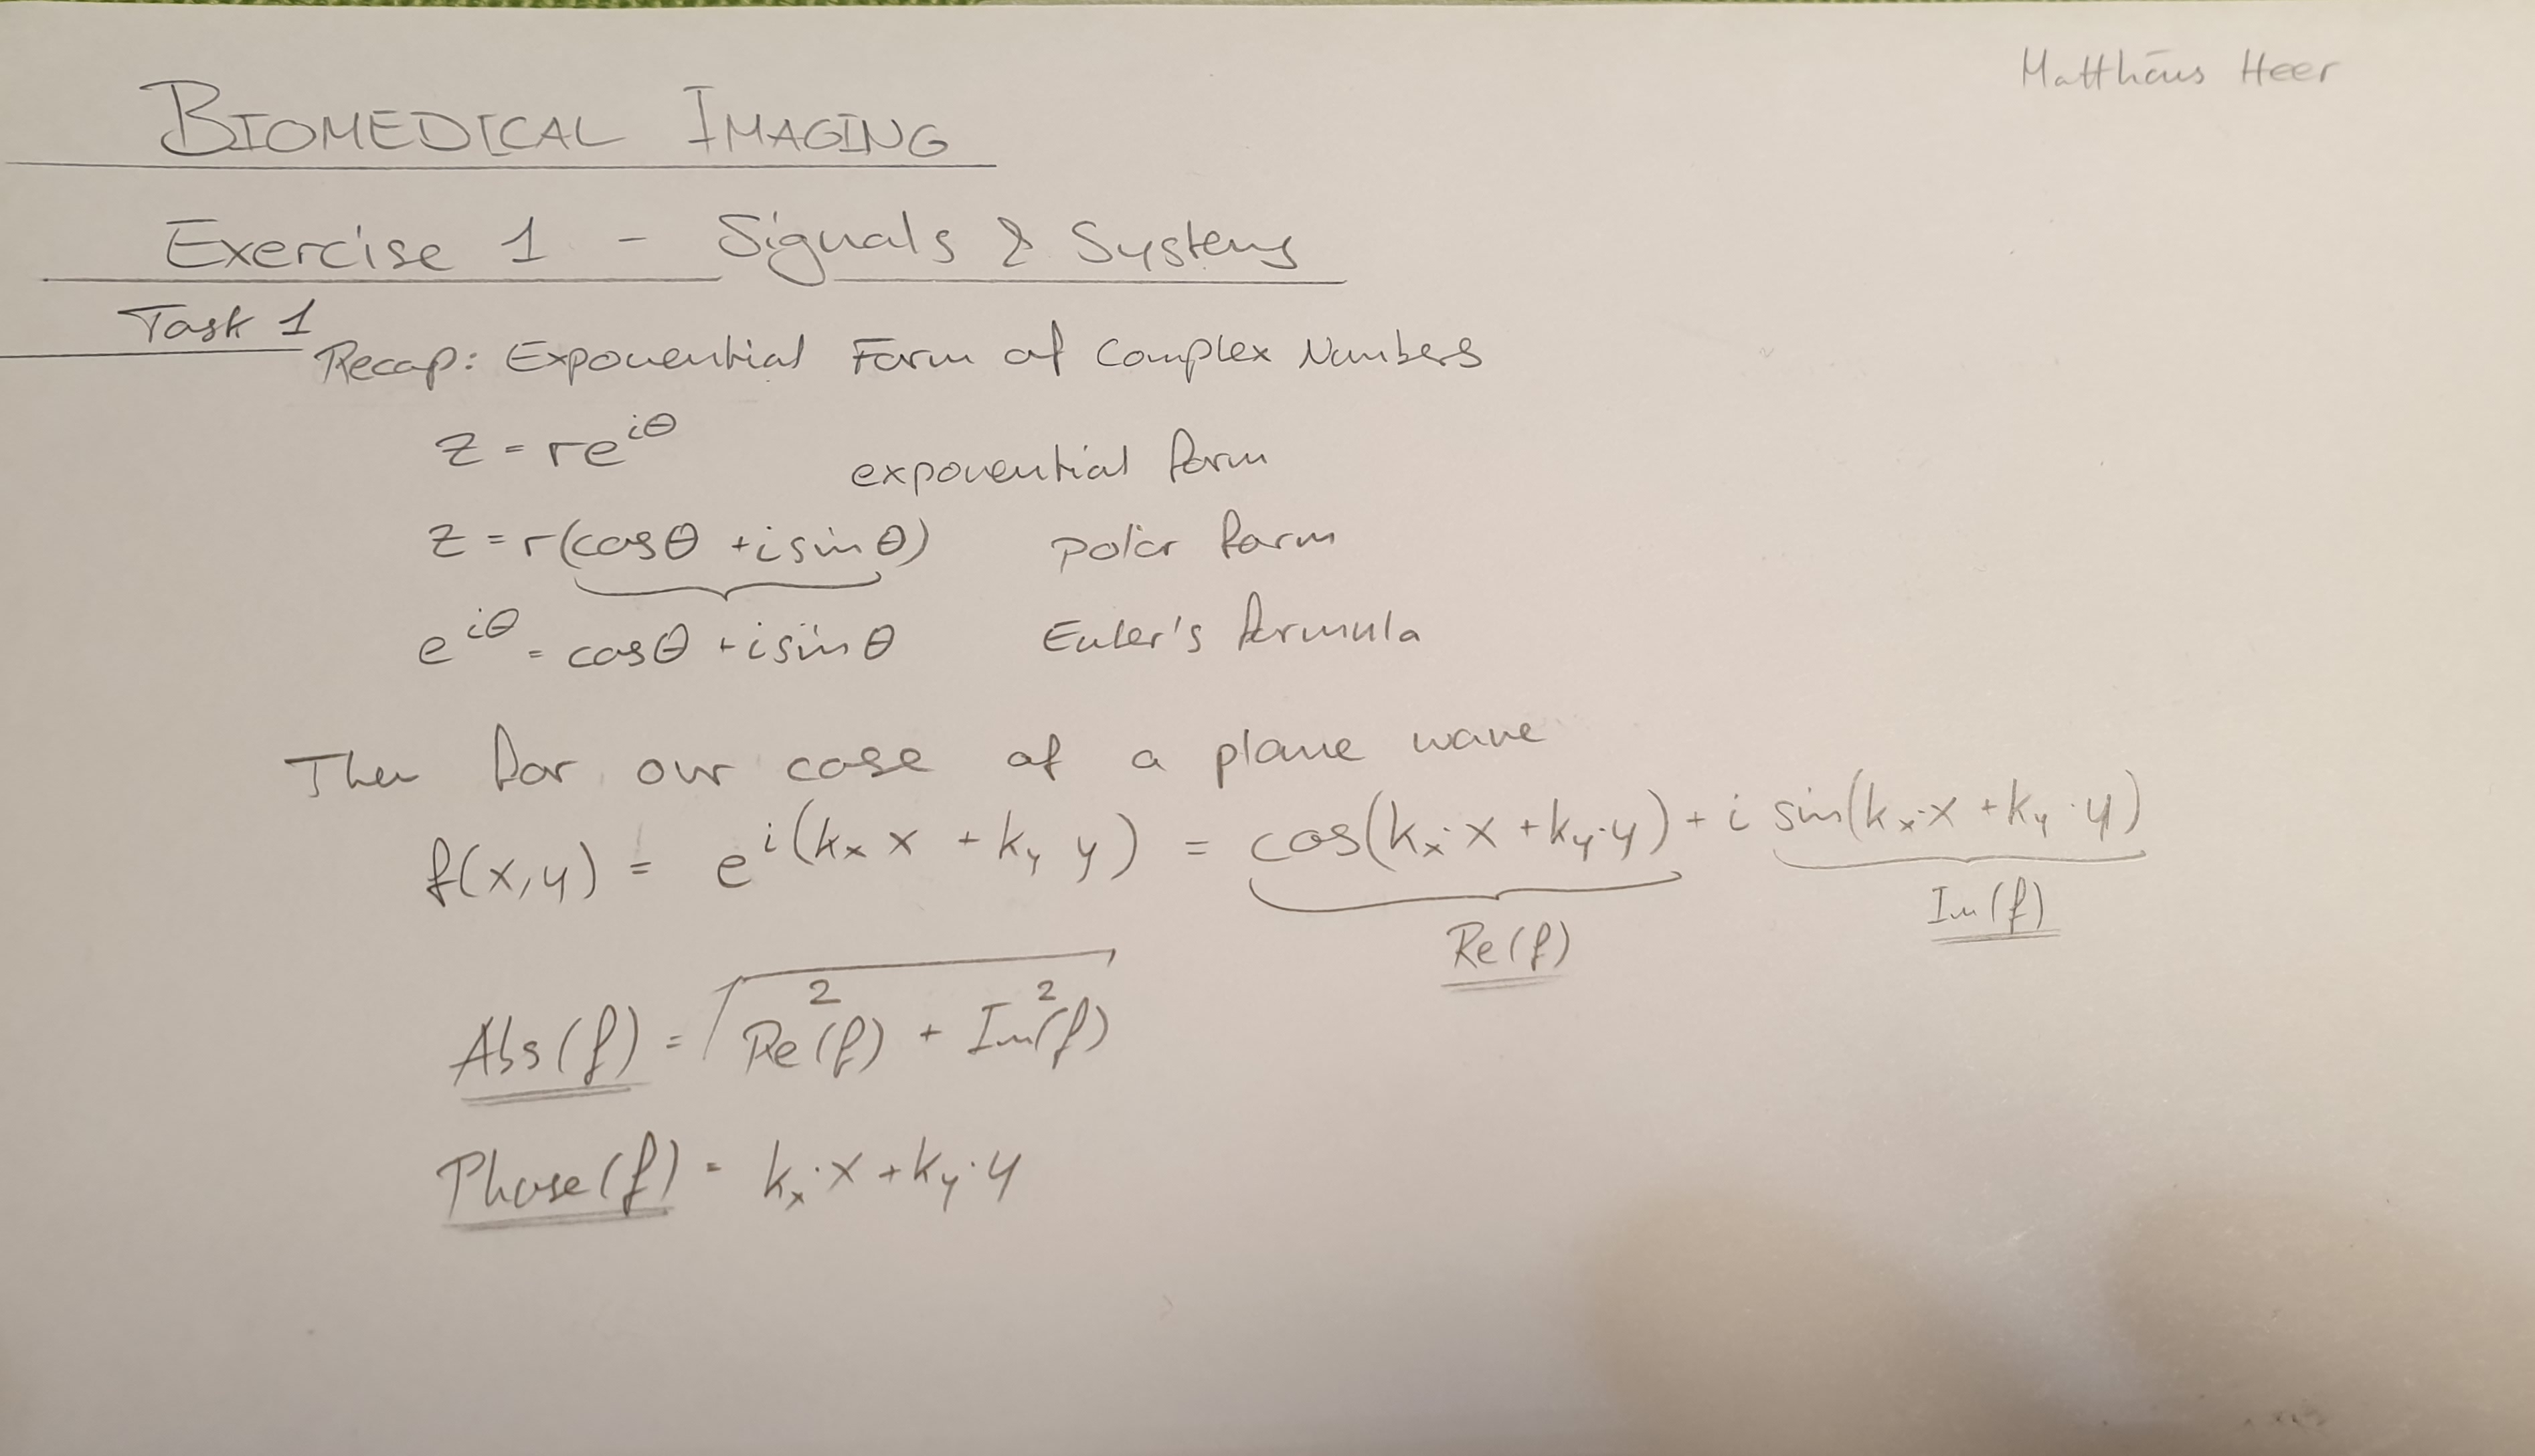 Matthäus Heer
BIOMEDICAL IMAGING
Exercise 1 - Signals & Systems
Task 1
Recap: Exponential Form of Complex Numbers
z = re^{iθ} exponential form
z = r(cosθ + i sinθ) polar form
e^{iθ} = cosθ + i sinθ Euler's formula
Then for our case of a plane wave
f(x,y) = e^{i(k_x x + k_y y)} = cos(k_x·x + k_y·y) + i sin(k_x·x + k_y·y)
Re(f) Im(f)
Abs(f) = √(Re²(f) + Im²(f))
Phase(f) = k_x·x + k_y·y